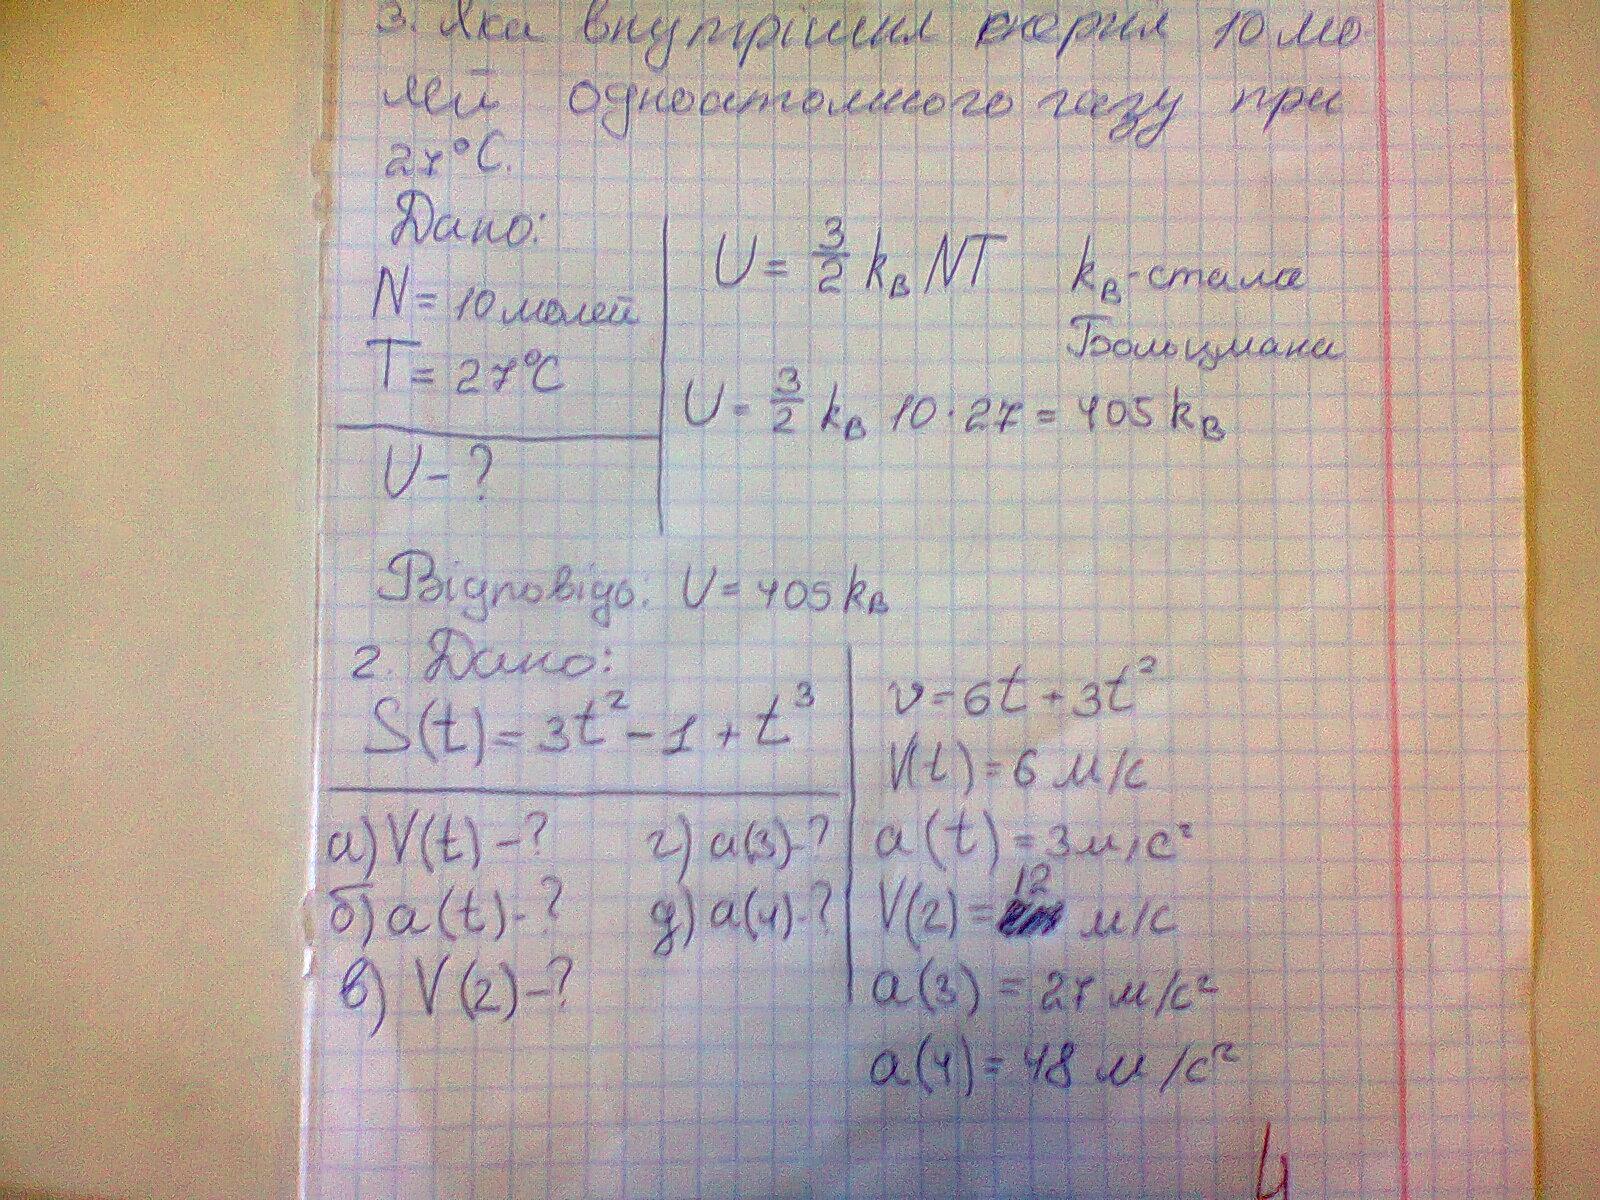 3. Яка внутрішня енергія 10 мо
лей одноатомного газу при
27°С.
Дано:
N = 10 молей
T = 27°C
U - ?
U = 3/2 k_B NT k_B - стала
Больцмана
U = 3/2 k_B 10 · 27 = 405 k_B
Відповідь: U = 405 k_B
2. Дано:
S(t) = 3t² - 1 + t³
а) V(t) - ? г) a(3) - ?
б) a(t) - ? д) a(4) - ?
в) V(2) - ?
v = 6t + 3t²
V(t) = 6 м/с
a(t) = 3 м/с²
V(2) = 12 м/с
a(3) = 27 м/с²
a(4) = 48 м/с²
4